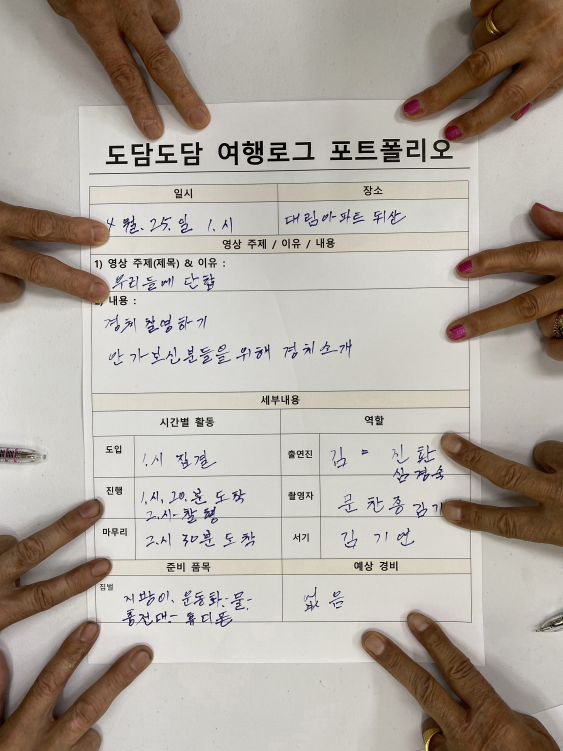 도담도담 여행로그 포트폴리오
일시 장소
4월. 25. 일 1. 시 대림아파트 뒤산
영상 주제 / 이유 / 내용
1) 영상 주제(제목) & 이유 :
우리들에 단합
2) 내용 :
경치 촬영하기
안 가보신분들을 위해 경치소개
세부내용
시간별 활동 역할
도입 1.시 집결 출연진 김 진환
심경숙
진행 1.시, 20.분 도착 촬영자 문찬홍 김기
2.시- 촬영
마무리 2.시 30분 도착 서기 김기연
준비 품목 예상 경비
짐벌
지팡이. 운동화- 물- 없음
휴대폰